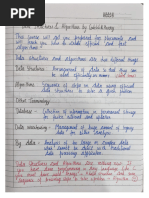 Data Structures & Algorithms by CodeWithHarry
This course will get you prepared for placements and
will teach you how to create efficient and fast
algorithms.
Data Structures and Algorithms are two different things.
Data Structures - Arrangement of data so that they can
be used efficiently in memory
Algorithms - Sequence of steps on data using efficient
data structures to solve a given problem.
Other Terminology
Database - Collection of information in permanent storage
for faster retrieval and updation.
Data warehousing - Management of huge amount of legacy
data for better analysis.
Big data - Analysis of too large or complex data
which cannot be dealt with traditional
data processing application.
Data Structures and Algorithms are nothing new. If
you have done programming in any language like C
you must have used Arrays → A data structure and
sequence of processing steps to solve a problem →